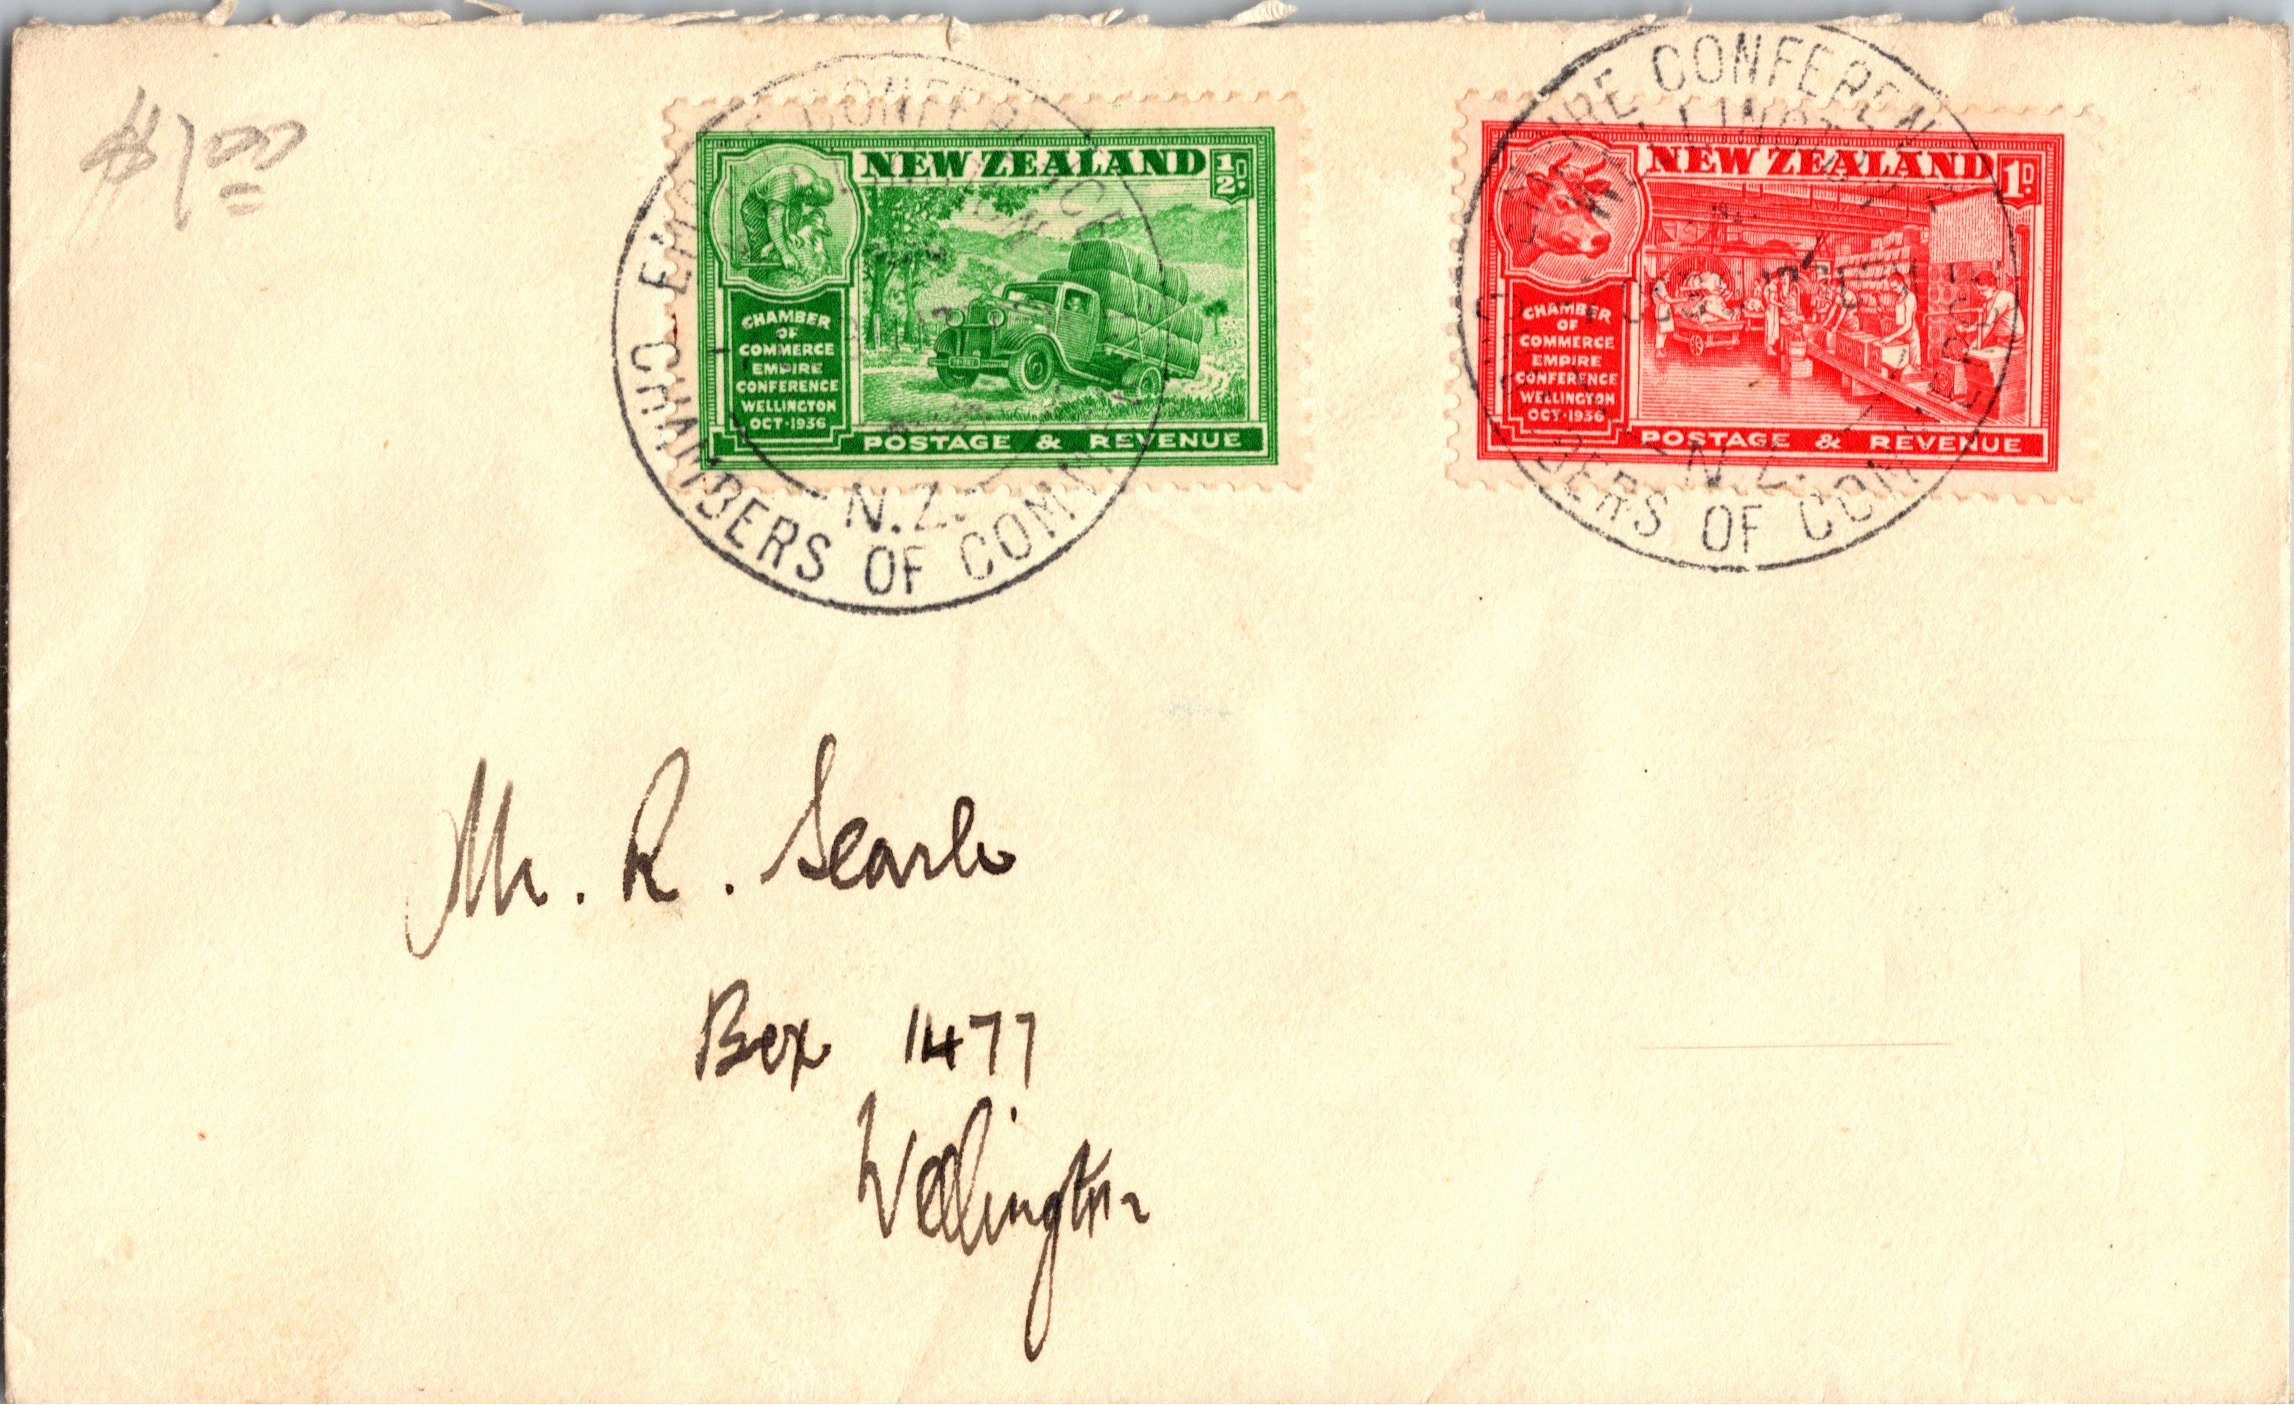 $1.00
NEW ZEALAND ½D.
CHAMBER
OF
COMMERCE
EMPIRE
CONFERENCE
WELLINGTON
OCT·1936
POSTAGE & REVENUE
CHAMBERS OF COMM
EMPIRE CONFERENCE
N.Z.
NEW ZEALAND 1D.
CHAMBER
OF
COMMERCE
EMPIRE
CONFERENCE
WELLINGTON
OCT·1936
POSTAGE & REVENUE
EMPIRE CONFEREN
WELLINGTON
N.Z.
BERS OF COMM
Mr. R. Searle
Box 1477
Wellington